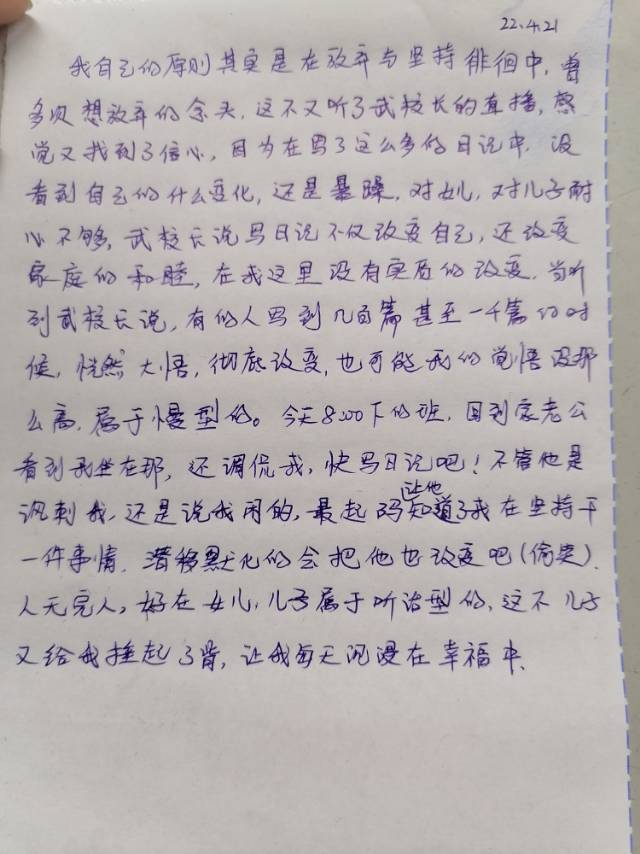 22.4.21
我自己的原则其实是在放弃与坚持徘徊中,曾
多次想放弃的念头,这不又听了武校长的直播,感
觉又找到了信心,因为在写了这么多的日记中,没
看到自己的什么变化,还是暴躁,对女儿,对儿子耐
心不够,武校长说写日记不仅改变自己,还改变
家庭的和睦,在我这里没有实质的改变,当听
到武校长说,有的人写到几百篇甚至一千篇的时
候,恍然大悟,彻底改变,也可能我的觉悟没那
么高,属于慢型的。今天8:00下的班,回到家老公
看到我坐在那,还调侃我,快写日记吧!不管他是
讽刺我,还是说我闲的,最起码让他知道了我在坚持干
一件事情,潜移默化的会把他也改变吧(偷笑).
人无完人,好在女儿,儿子属于听话型的,这不儿子
又给我捶起了背,让我每天沉浸在幸福中.